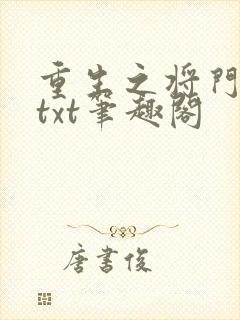 重生之将门
txt笔趣阁
唐書俊